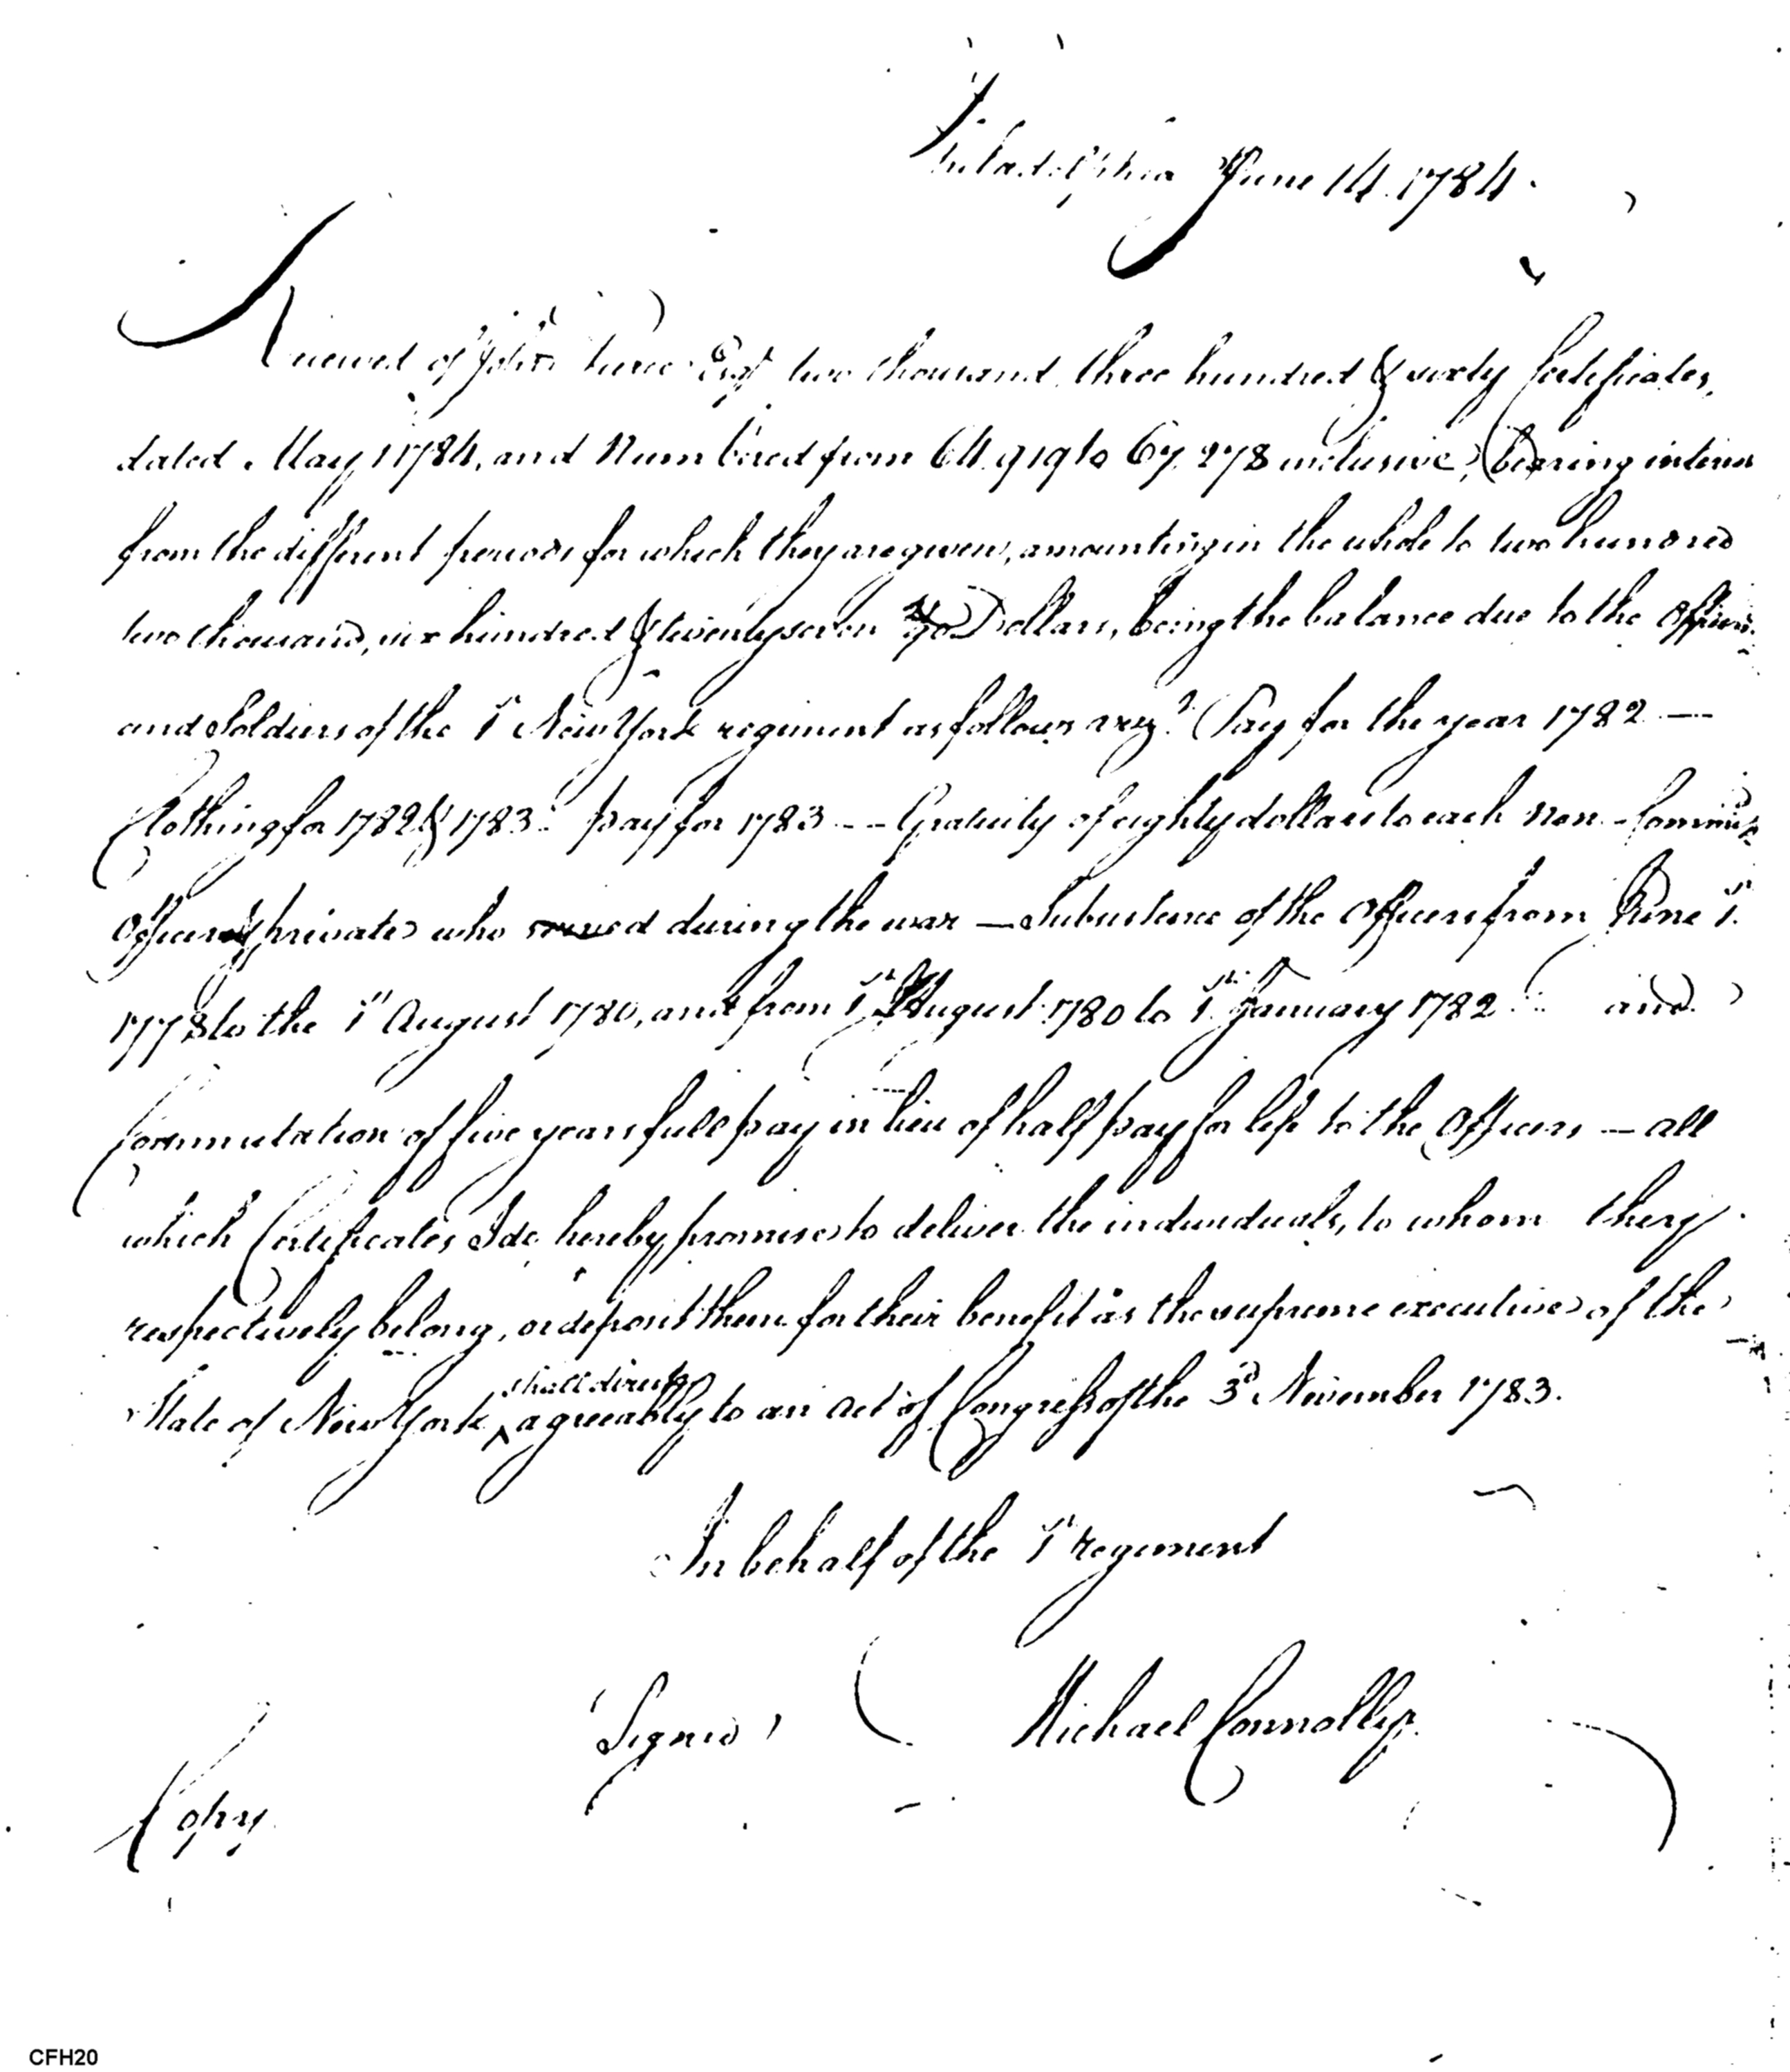 Philadelphia June 14. 1784.
Received of John Pierce Esqr two thousand three hundred & sixty Certificates,
dated May 1 1784, and Numbered from 64.919 to 67.278 inclusive, (bearing interest
from the different periods for which they are given, amounting in the whole to two hundred
two thousand, six hundred & twenty seven /90 Dollars, being the balance due to the Officers
and Soldiers of the 1st New York regiment as follows viz. Pay for the year 1782 —
Clothing for 1782 & 1783. pay for 1783 -- Gratuity of eighty dollars to each Non-Commis
Officer & private who served during the war — Subsistence of the Officers from June 1st
1778 to the 1st August 1780, and from 1st August 1780 to 1st January 1782 and
Commutation of five years full pay in lieu of half pay for life to the Officers — all
which Certificates I do hereby promise to deliver the individuals, to whom they
respectively belong, or deposit them for their benefit as the supreme executive of the
State of New York ^ shall direct agreeably to an Act of Congress of the 3d November 1783.
In behalf of the 1st regiment
Signed Michael Connolly
Copy
CFH20